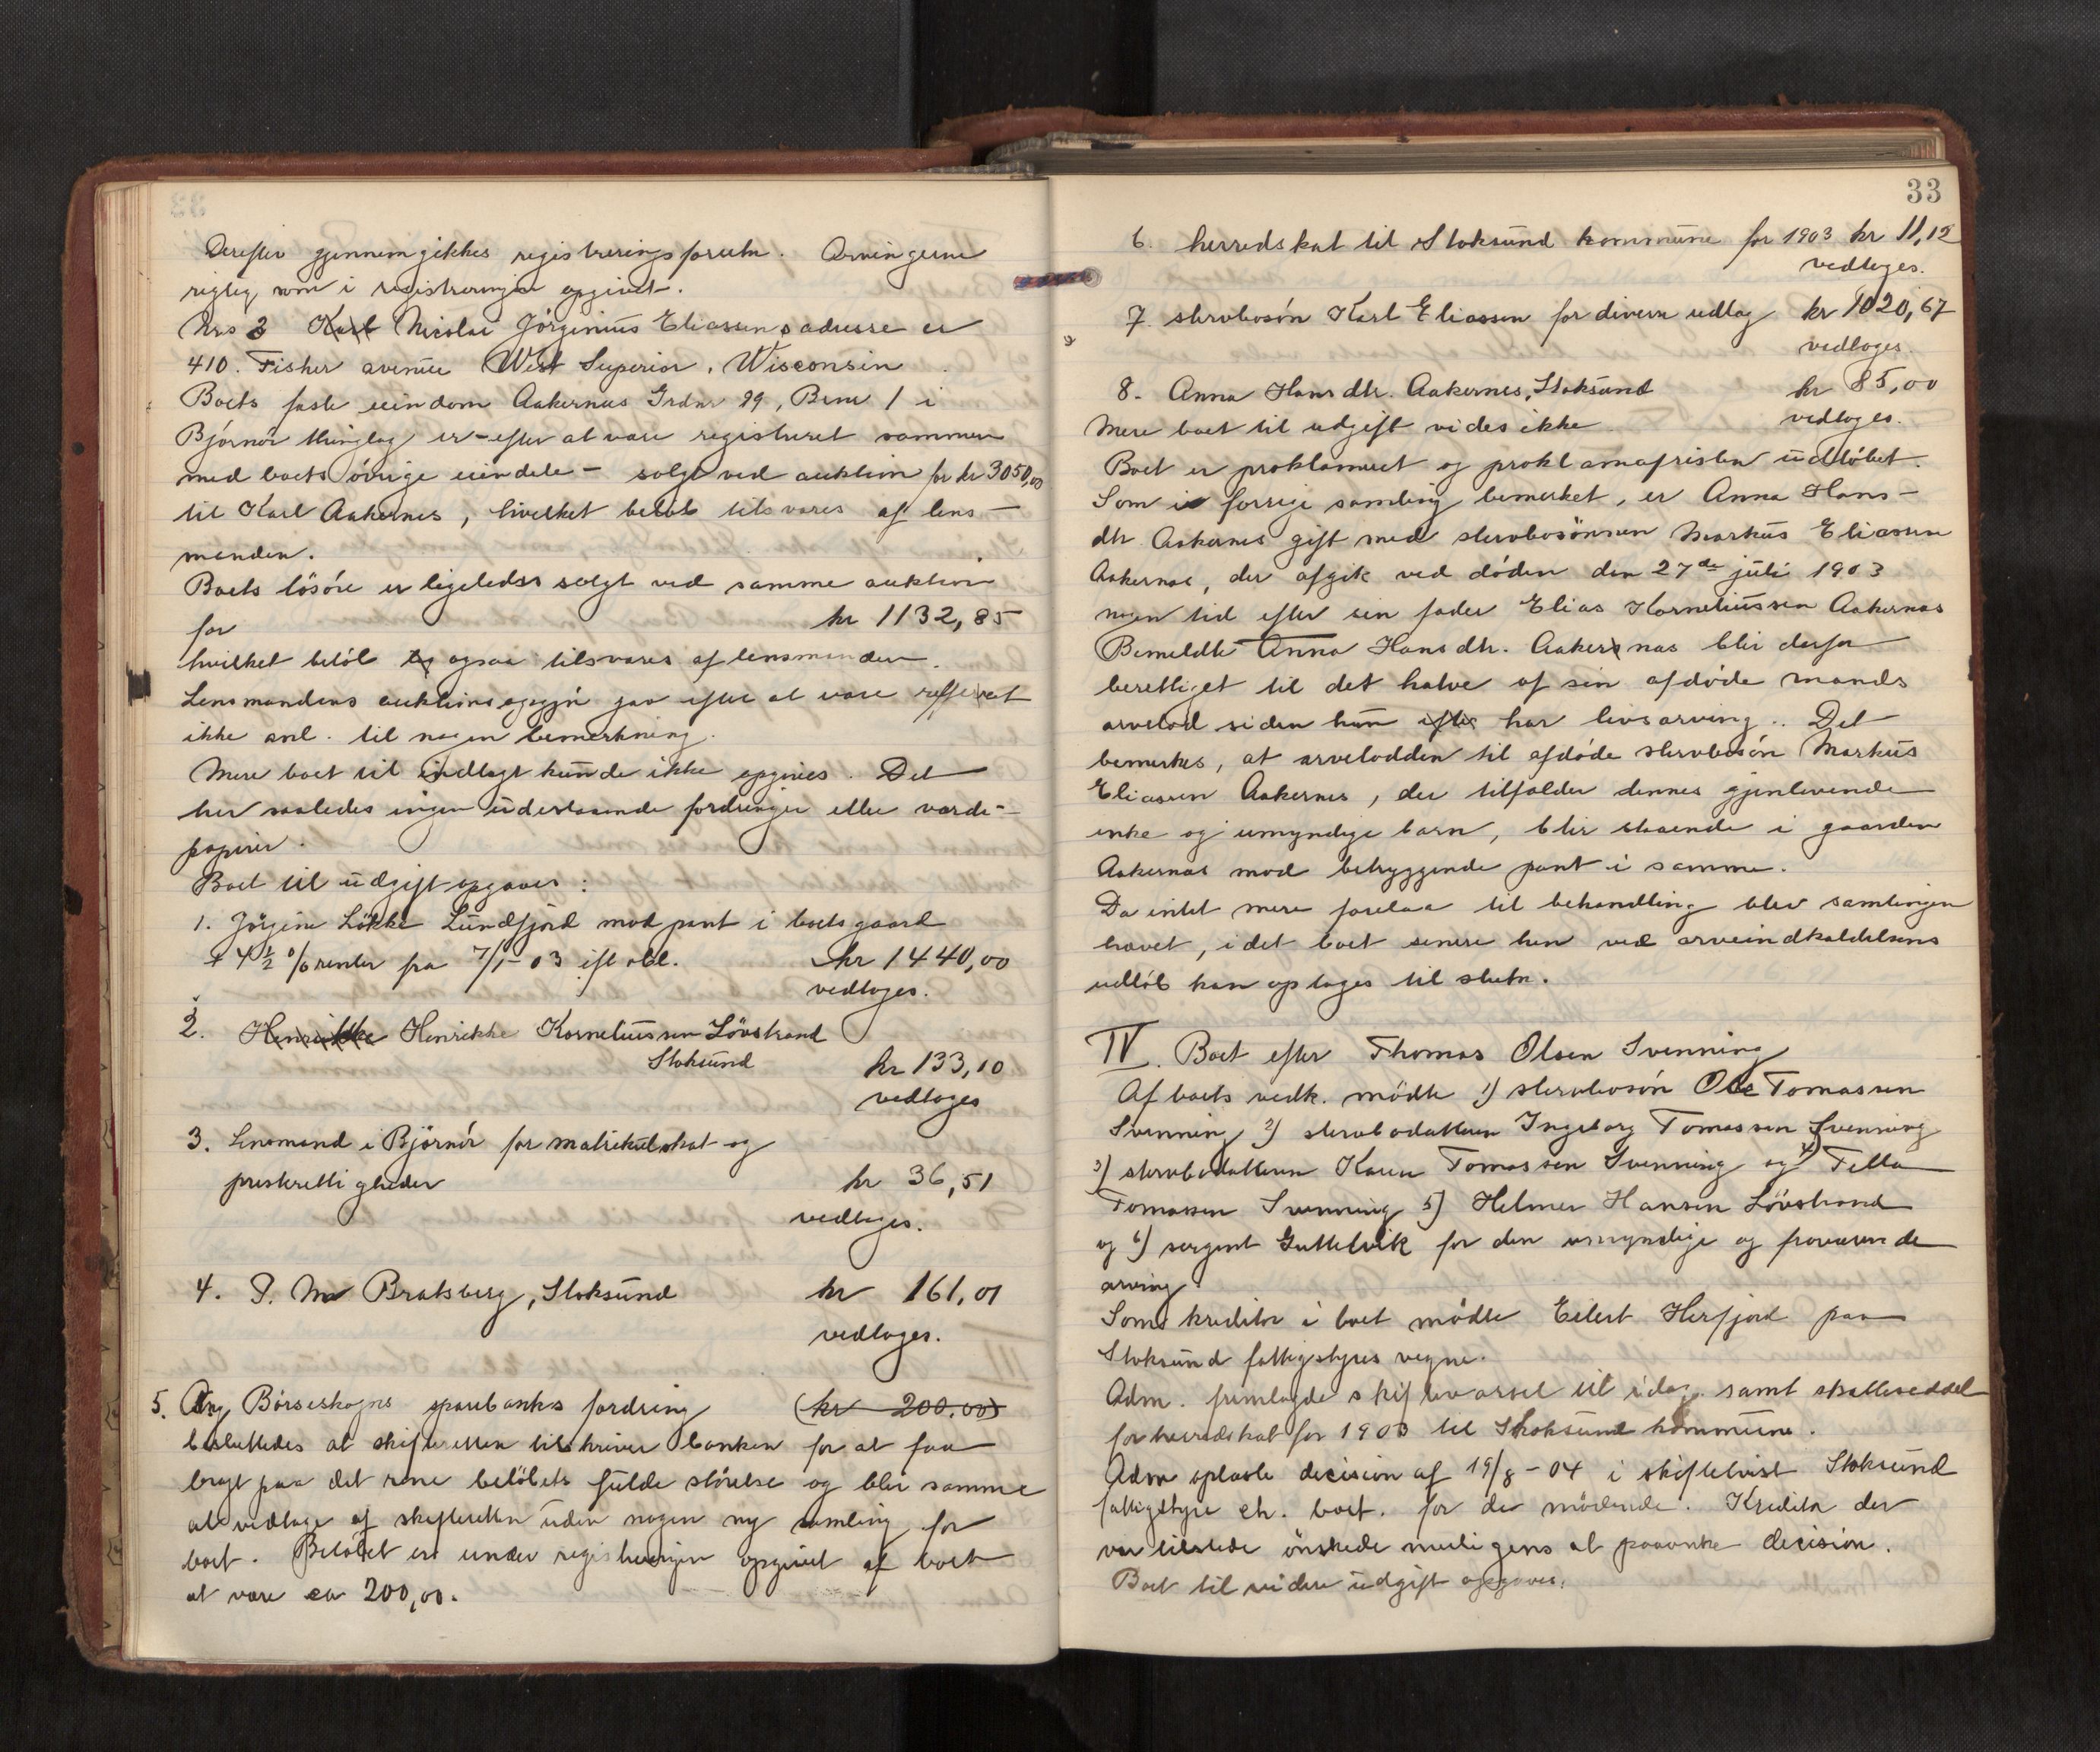 Derefter gjennemgikkes registreringsforretn. Arvingerne
rigtig som i registreringen opgivet.
Nrs 3 Karl Nicolai Jörginius Eliassens adresse er
410. Fisher avenue West Superior, Wisconsin
Boets faste eiendom Aakernes Grdnr 29, Brnr 1 i
Björnör thinglag er - efter at være registreret sammen
med boets övrige eiendele - solgt ved auktion for kr 3050,00
til Karl Aakernes, hvilket belöb tilsvares af lens-
manden.
Boets lösöre er ligeledes solgt ved samme auktion
for kr 1132,85
hvilket belöb og ogsaa tilsvares af lensmanden.
Lensmandens auktionsopgjör gav efter at være refferert
ikke anl. til nogen bemerkning.
Mere boet til indtægt kunde ikke opgives. Det
har saaledes ingen udestaaende fordringer eller værdi-
papirer.
Boet til udgift opgaves:
1. Jörgine Lökke Lundfjord mod pant i boets gaard
+ 4 1/2 % renter fra 7/1-03 ifl obl. kr 1440,00
vedtoges.
2. Henrikke Henrikke Korneliussen Lövstrand
Stoksund kr 133,10
vedtoges
3. Lensmand i Björnör for matrikulskat og
presterettigheder kr 36,51
vedtoges.
4. P. M Bratsberg, Stoksund kr 161,01
vedtoges.
5. Ang Börseskogns sparebanks fordring (kr 200,00)
besluttedes at skifteretten tilskriver banken for at faa
bragt paa det rene belöbets fulde störelse og blir samme
at vedtage af skifteretten uden nogen ny samling for
boet. Belöbet er under registreringen opgivet af boet
at være ca 200,00.
33
6. herredskat til Stoksund kommune for 1903 kr 11,12
vedtoges.
7. stervbosön Karl Eliassen for diverse udlæg kr 1020,67
vedtoges.
8. Anna Hansdtr. Aakernes, Stoksund kr 85,00
Mere boet til udgift vides ikke vedtoges.
Boet er proklameret og proklamafristen udlöbet.
Som i forrige samling bemerket, er Anna Hans-
dtr Aakernes gift med stervbosönnen Markus Eliassen
Aakernes, der afgik ved döden den 27de juli 1903
nogen tid efter sin fader Elias Korneliussen Aakernes
Bemeldte Anna Hansdtr. Aakernes blir derfor
berettiget til det halve af sin afdöde mands
arvelod siden han efter har livsarving. Det
bemerkes, at arvelodden til afdöde stervbosön Markus
Eliassen Aakernes, der tilfalder dennes gjenlevende
enke og umyndige barn, blir staaende i gaarden
Aakernes mod betryggende pant i samme.
Da intet mere forelaa til behandling blev samlingen
hævet, idet boet senere hen ved arveindkaldelsens
udlöb kan optages til slutn.
IV. Boet efter Thomas Olsen Svenning
Af boets vedk. mödte 1) stervbosön Ole Tomassen
Svenning 2) stervbodatteren Ingeborg Tomassen Svenning
3) stervbodatteren Karen Tomassen Svenning og 4) Tella
Tomassen Svenning 5) Helmer Hansen Lövstrand
og 6) sergent Guttelvik for den umyndige og fraværende
arving.
Som kreditor i boet mödte Eilert Herfjord paa
Stoksund fattigstyres vegne.
Adm. fremlagde skiftevarsel til idag samt skatteseddel
for herredskat for 1903 til Stoksund kommune.
Adm oplæste decision af 19/8-04 i skiftetvist Stoksund
fattigstyre ctr. boet. for de mödende. Kreditor der
var tilstede önskede muligens at paaanke decision.
Boet til videre udgift opgaves: